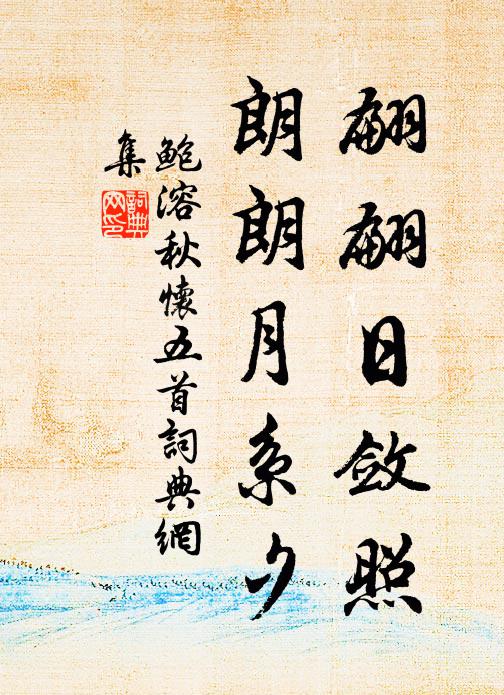 翩翩日敛照
朗朗月系夕
鮑溶秋懷五首詞典網
集
詞典
网印